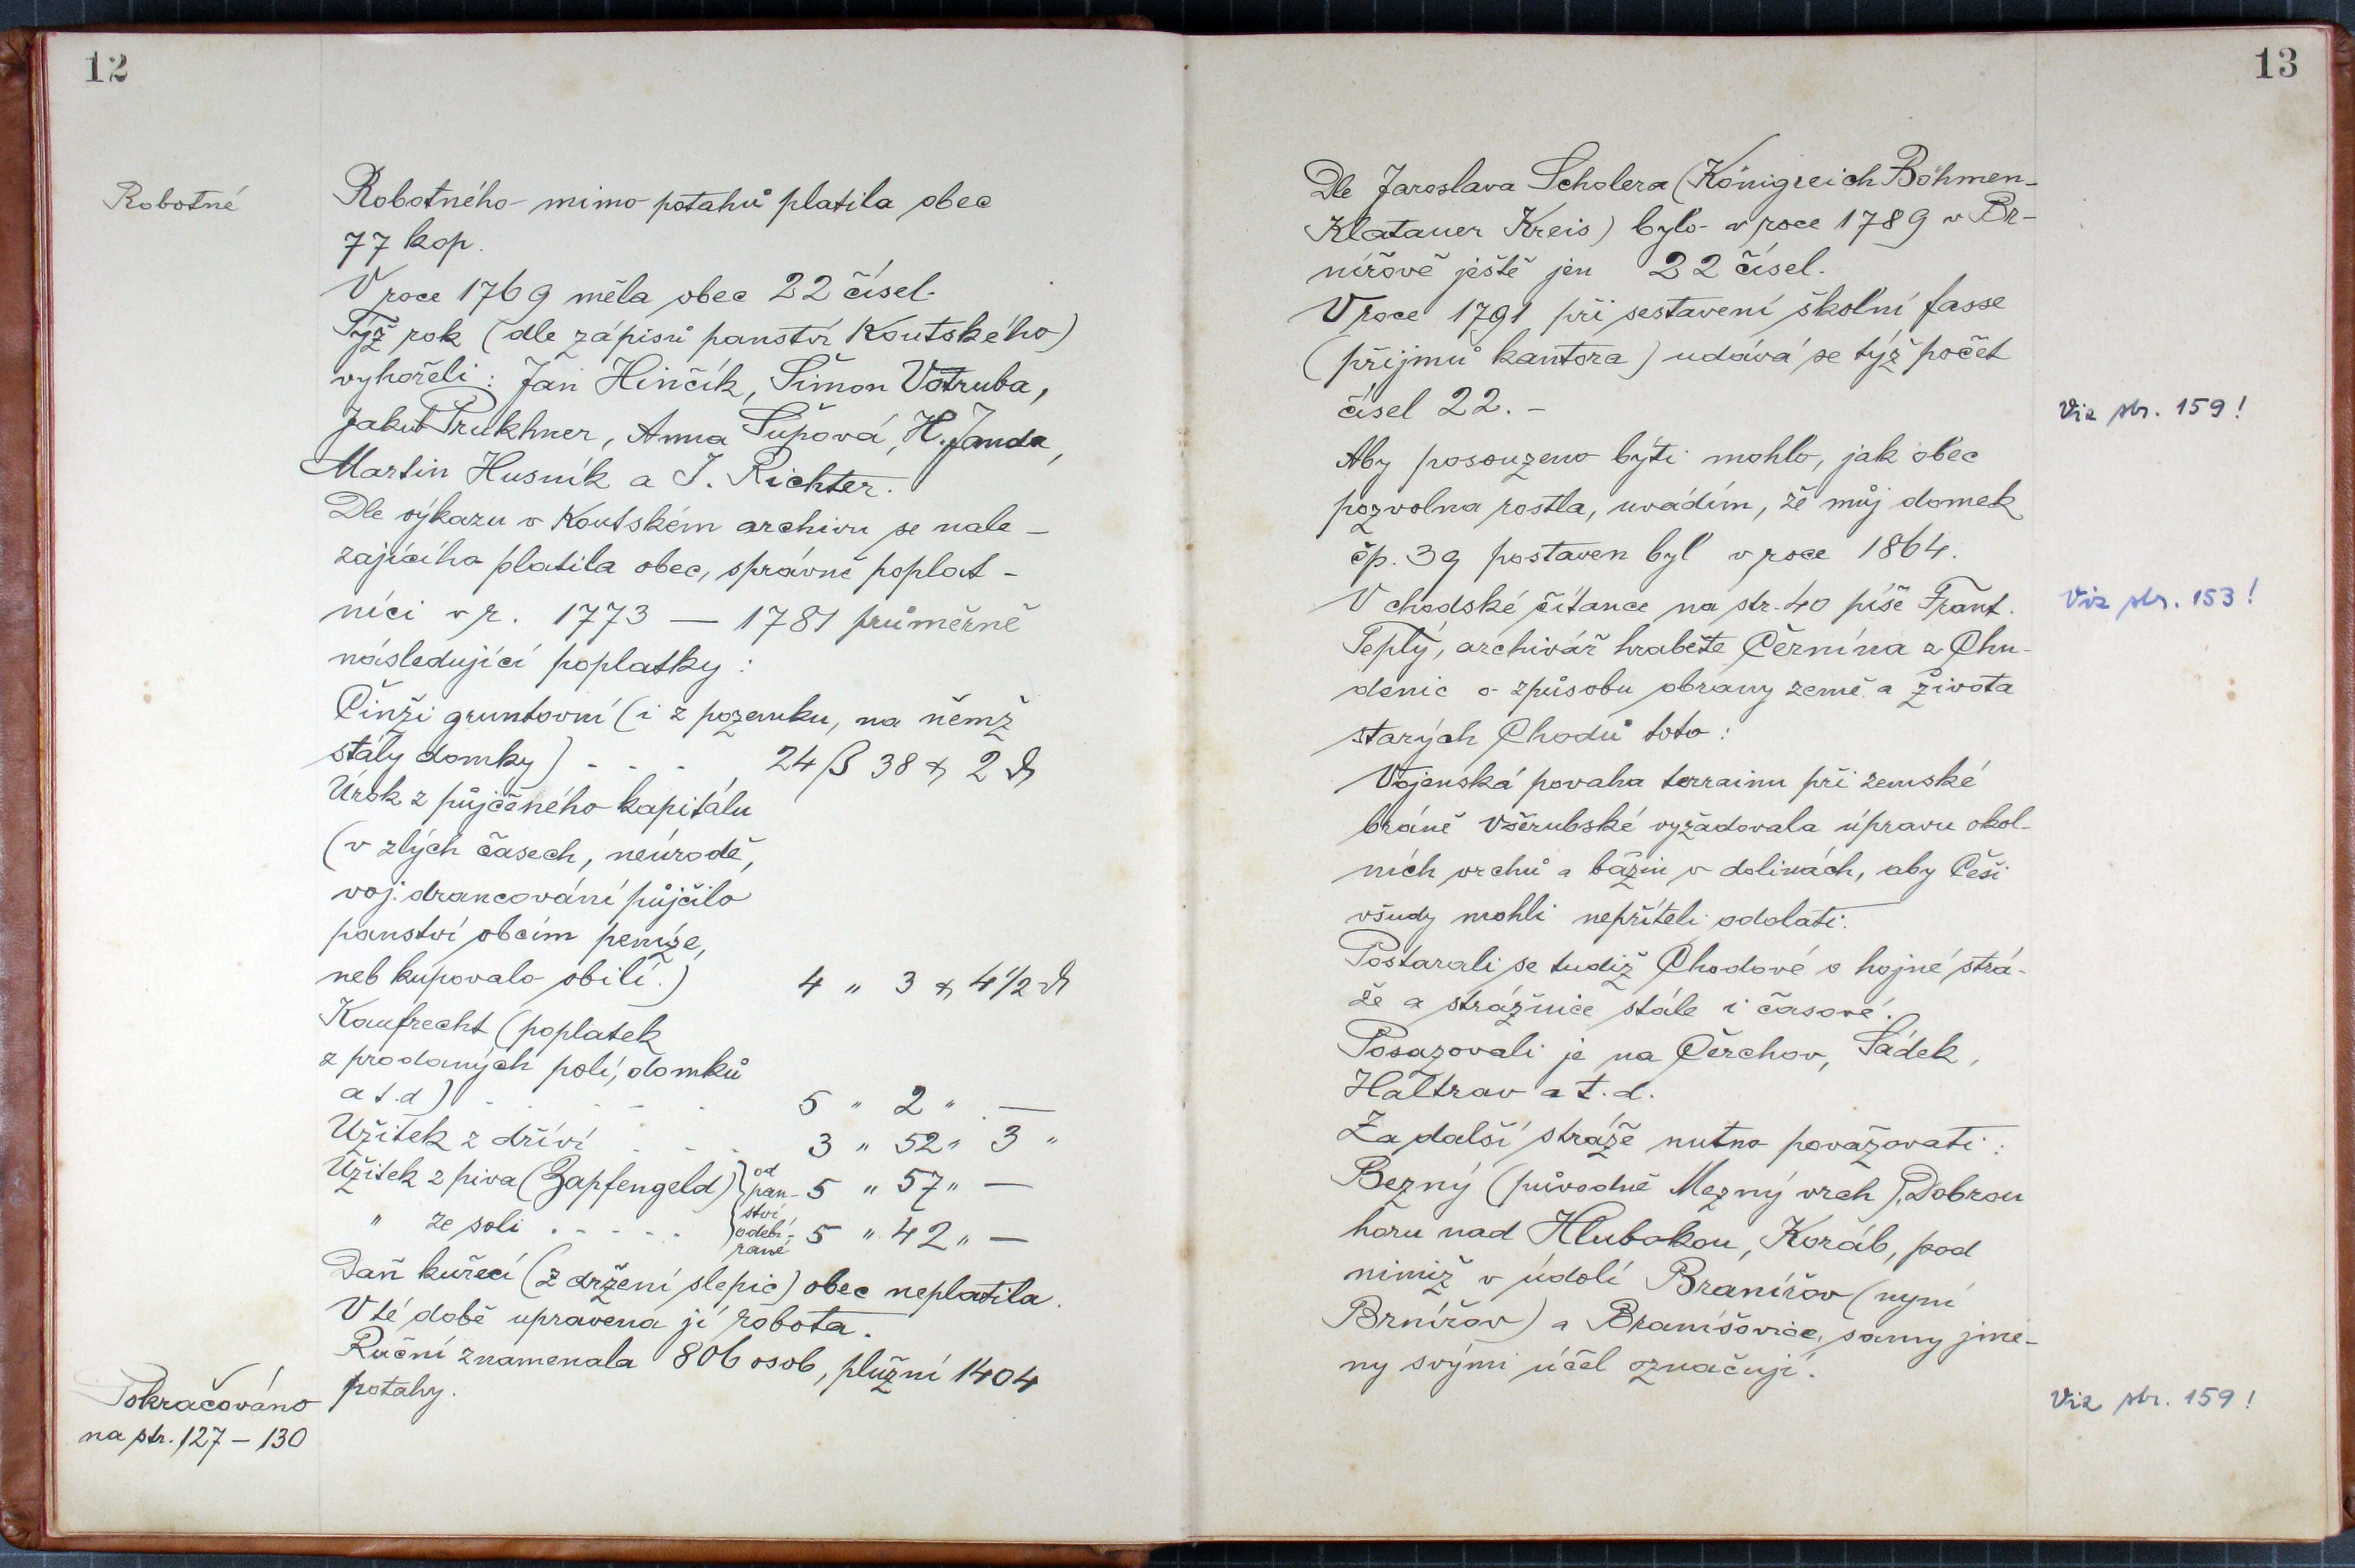 12
Robotné
Robotného mimo potahů platila obec
77 kop.
V roce 1769 měla obec 22 čísel.
Týž rok (dle zápisů panství Koutského)
vyhořeli: Jan Hinčík, Šimon Votruba,
Jakub Prukhner, Anna Šupová, H. Janda,
Martin Husník a J. Richter.
Dle výkazu v Koutském archivu se nale-
zajícího platila obec, správně poplat-
níci v r. 1773 — 1781 průměrně
následující poplatky:
Činži gruntovní (i z pozemku, na němž
stály domky) . . . 24 β 38 xr 2 ₰
Úrok z půjčeného kapitálu
(v zlých časech, neúrodě,
voj. drancování půjčilo
panství obcím peníze,
neb kupovalo obilí.) 4 " 3 xr 4 1/2 ₰
Kaufrecht (poplatek
z prodaných polí, domků
a t.d.) . . . . . 5 " 2 " . —
Užitek z dříví . . . 3 " 52 " 3 "
Užitek z piva (Zapfengeld) } od pan- 5 " 57 " —
" ze soli . . . . . } ství odebí- rané 5 " 42 " —
Daň kuřecí (z držení slepic) obec neplatila.
V té době upravena jí robota.
Ruční znamenala 806 osob, plužní 1404
potahy.
Pokračováno
na str. 127 — 130
13
Dle Jaroslava Scholera (Königreich Böhmen-
Klatauer Kreis) bylo v roce 1789 v Br-
nířově ještě jen 22 čísel.
V roce 1791 při sestavení školní fasse
(příjmů kantora) udává se týž počet
čísel 22. –
Viz str. 159!
Aby posouzeno býti mohlo, jak obec
pozvolna rostla, uvádím, že můj domek
čp. 39 postaven byl v roce 1864.
V chodské čítance na str. 40 píše Frant.
Viz str. 153!
Teplý, archivář hraběte Černína z Chu-
denic o způsobu obrany země a života
starých Chodů toto:
Vojenská povaha terrainu při zemské
bráně Všerubské vyžadovala úpravu okol-
ních vrchů a bažin v dolinách, aby Češi
všudy mohli nepříteli odolati.
Postarali se tudíž Chodové o hojné strá-
že a strážnice stále i časové.
Posazovali je na Čerchov, Sádek,
Haltrav a t. d.
Za další stráže nutno považovati:
Bezný (původně Mezný vrch), Dobrou
horu nad Hlubokou, Koráb, pod
nimiž v údolí Branířov (nyní
Brnířov) a Branišovice, samy jmé-
ny svými účel označují.
Viz str. 159!